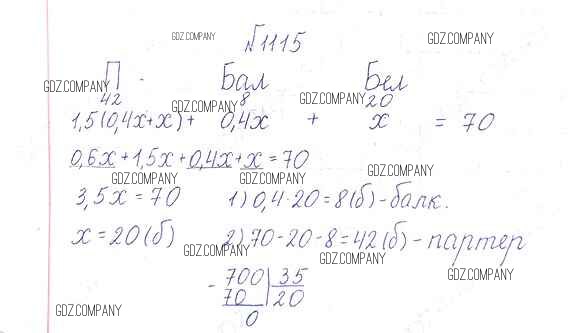 №1115
GDZ.COMPANY GDZ.COMPANY
П - Бал Бел
GDZ.COMPANY GDZ.COMPANY GDZ.COMPANY
42 8 20
1,5(0,4x+x)+ 0,4x + x = 70
GDZ.COMPANY
0,6x+1,5x+0,4x+x=70
GDZ.COMPANY GDZ.COMPANY GDZ.COMPANY
3,5x=70 1) 0,4·20=8(б)-балк.
GDZ.COMPANY
x=20(б) 2) 70-20-8=42(б)-партер
GDZ.COMPANY GDZ.COMPANY
-700 35
70 20
0
GDZ.COMPANY GDZ.COMPANY